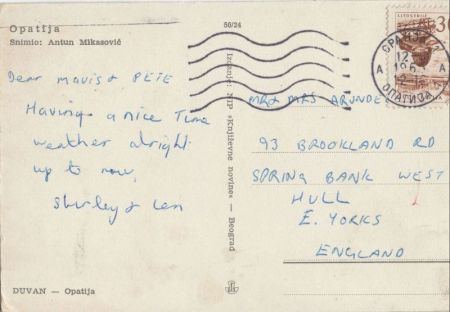 Opatija
Snimio: Antun Mikasović
50/24
Dear Mavis & PETE
Having a nice Time
weather alright
up to now,
Shirley & Len
DUVAN — Opatija
Izdanje: NIP »Književne novine« — Beograd
30
OPATIJA 2
A A
ОПАТИЈА 2
MR & MRS ARUNDEL
93 BROOKLAND RD
SPRING BANK WEST
HULL
E. YORKS
ENGLAND